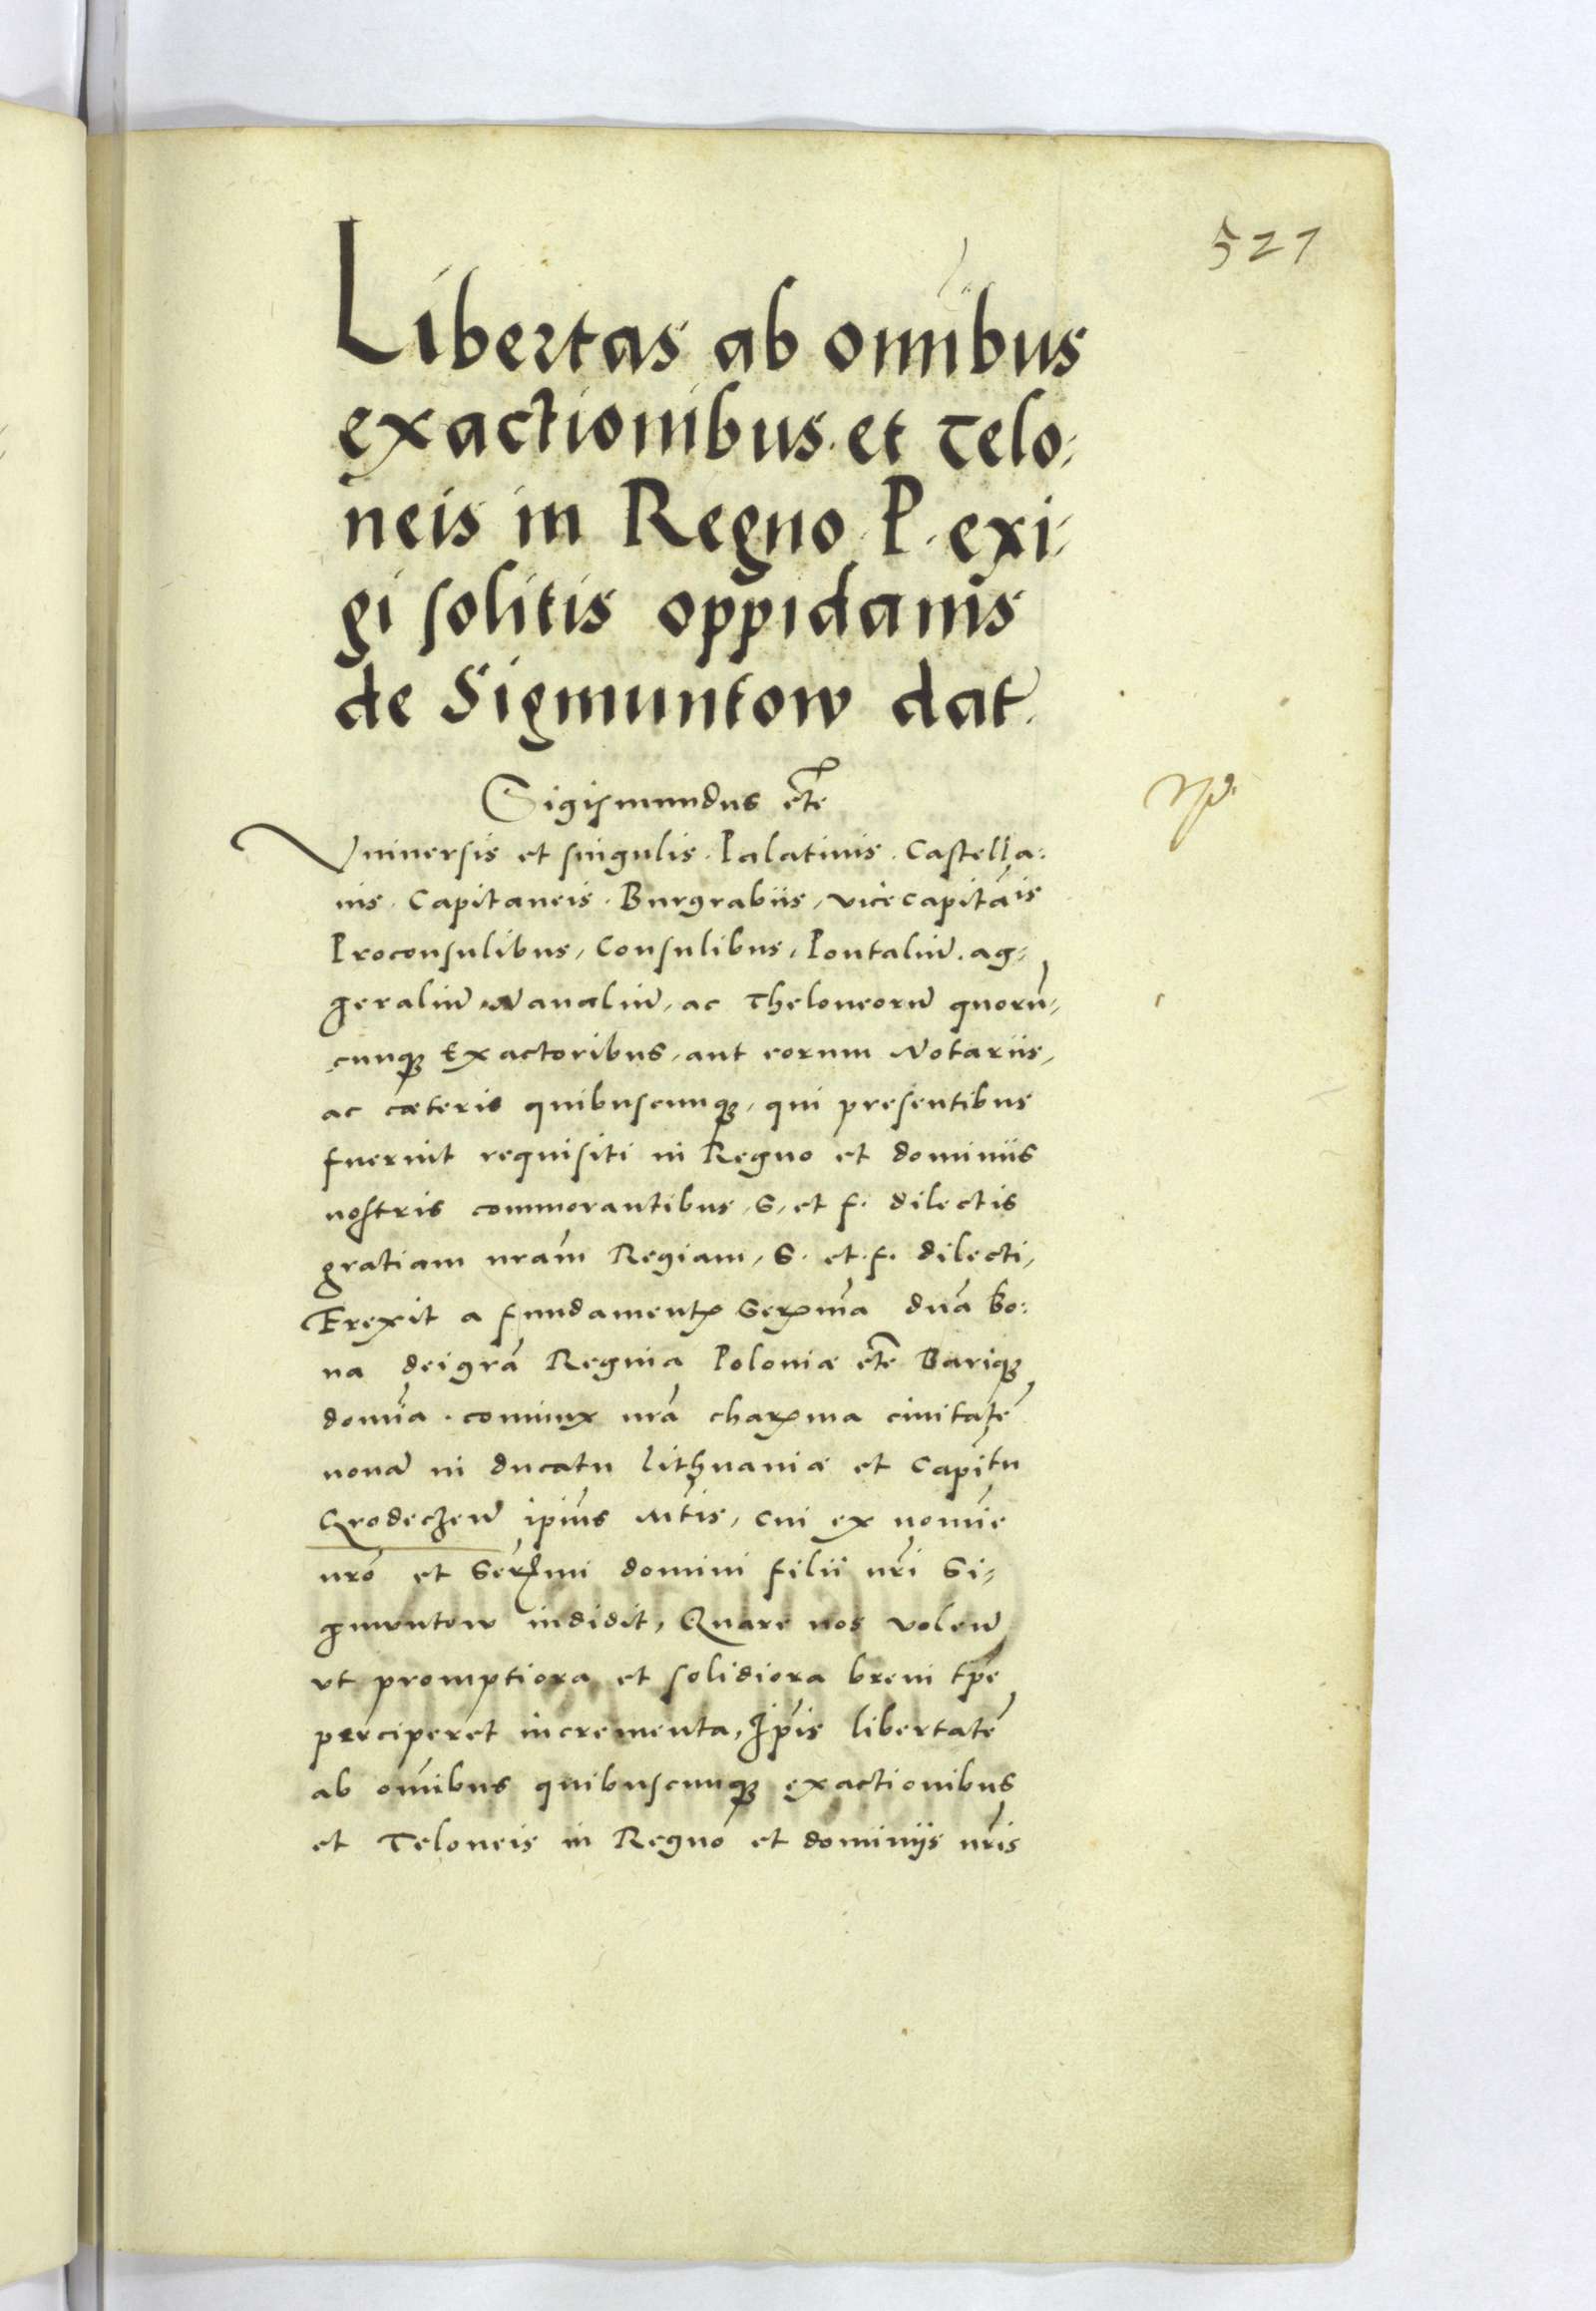 527
Libertas ab omnibus
exactionibus. et Telo-
neis in Regno. P. exi-
gi solitis oppidanis
de Sigmuntow dat.
Sigismundus etc̄
Vniuersis et singulis. Palatinis. Castella:
nis. Capitaneis. Burgrabiis, vicecapitāis
Proconsulibus, Consulibus, Pontaliū. ag-
geraliū Naualiū, ac Theloneorū quorū-
cunqȝ Exactoribus, aut eorum Notariis,
ac cæteris quibuscunqȝ, qui presentibus
fuerint requisiti in Regno et dominiis
nostris commorantibus, S, et f. dilectis
gratiam nr̄am Regiam, S. et. f. dilecti,
Erexit a fundamentꝭ Serꝰma dn̄a bo:
na dei gr̄a Regina Poloniæ etc̄ Bariqȝ
domīa. coniunx nr̄a charꝰma ciuitatē
nouā in ducatu Lithuaniæ et Capitu
Grodecżeū ip̄ius Mt̄is, cui ex nomīe
nr̄o et Serꝰmi domini filii nr̄i Si-
gmuntow indidit, Quare nos volen̄
vt promptiora et solidiora breui tp̄e
perciperet incrementa, Ip̄is libertatē
ab omībus quibuscunqȝ exactionibus
et Teloneis in Regno et dominijs nr̄is